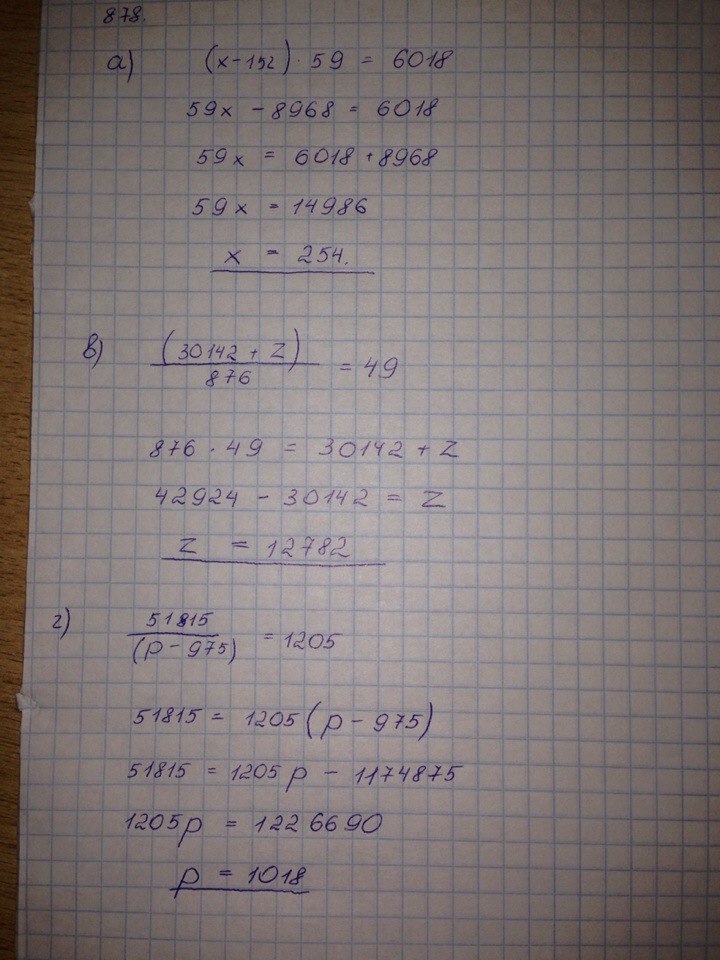 878.
а) (x-152) · 59 = 6018
59x - 8968 = 6018
59x = 6018 + 8968
59x = 14986
x = 254.
в) (30142 + z) / 876 = 49
876 · 49 = 30142 + z
42924 - 30142 = z
z = 12782
г) 51815 / (p - 975) = 1205
51815 = 1205 (p - 975)
51815 = 1205p - 1174875
1205p = 1226690
p = 1018